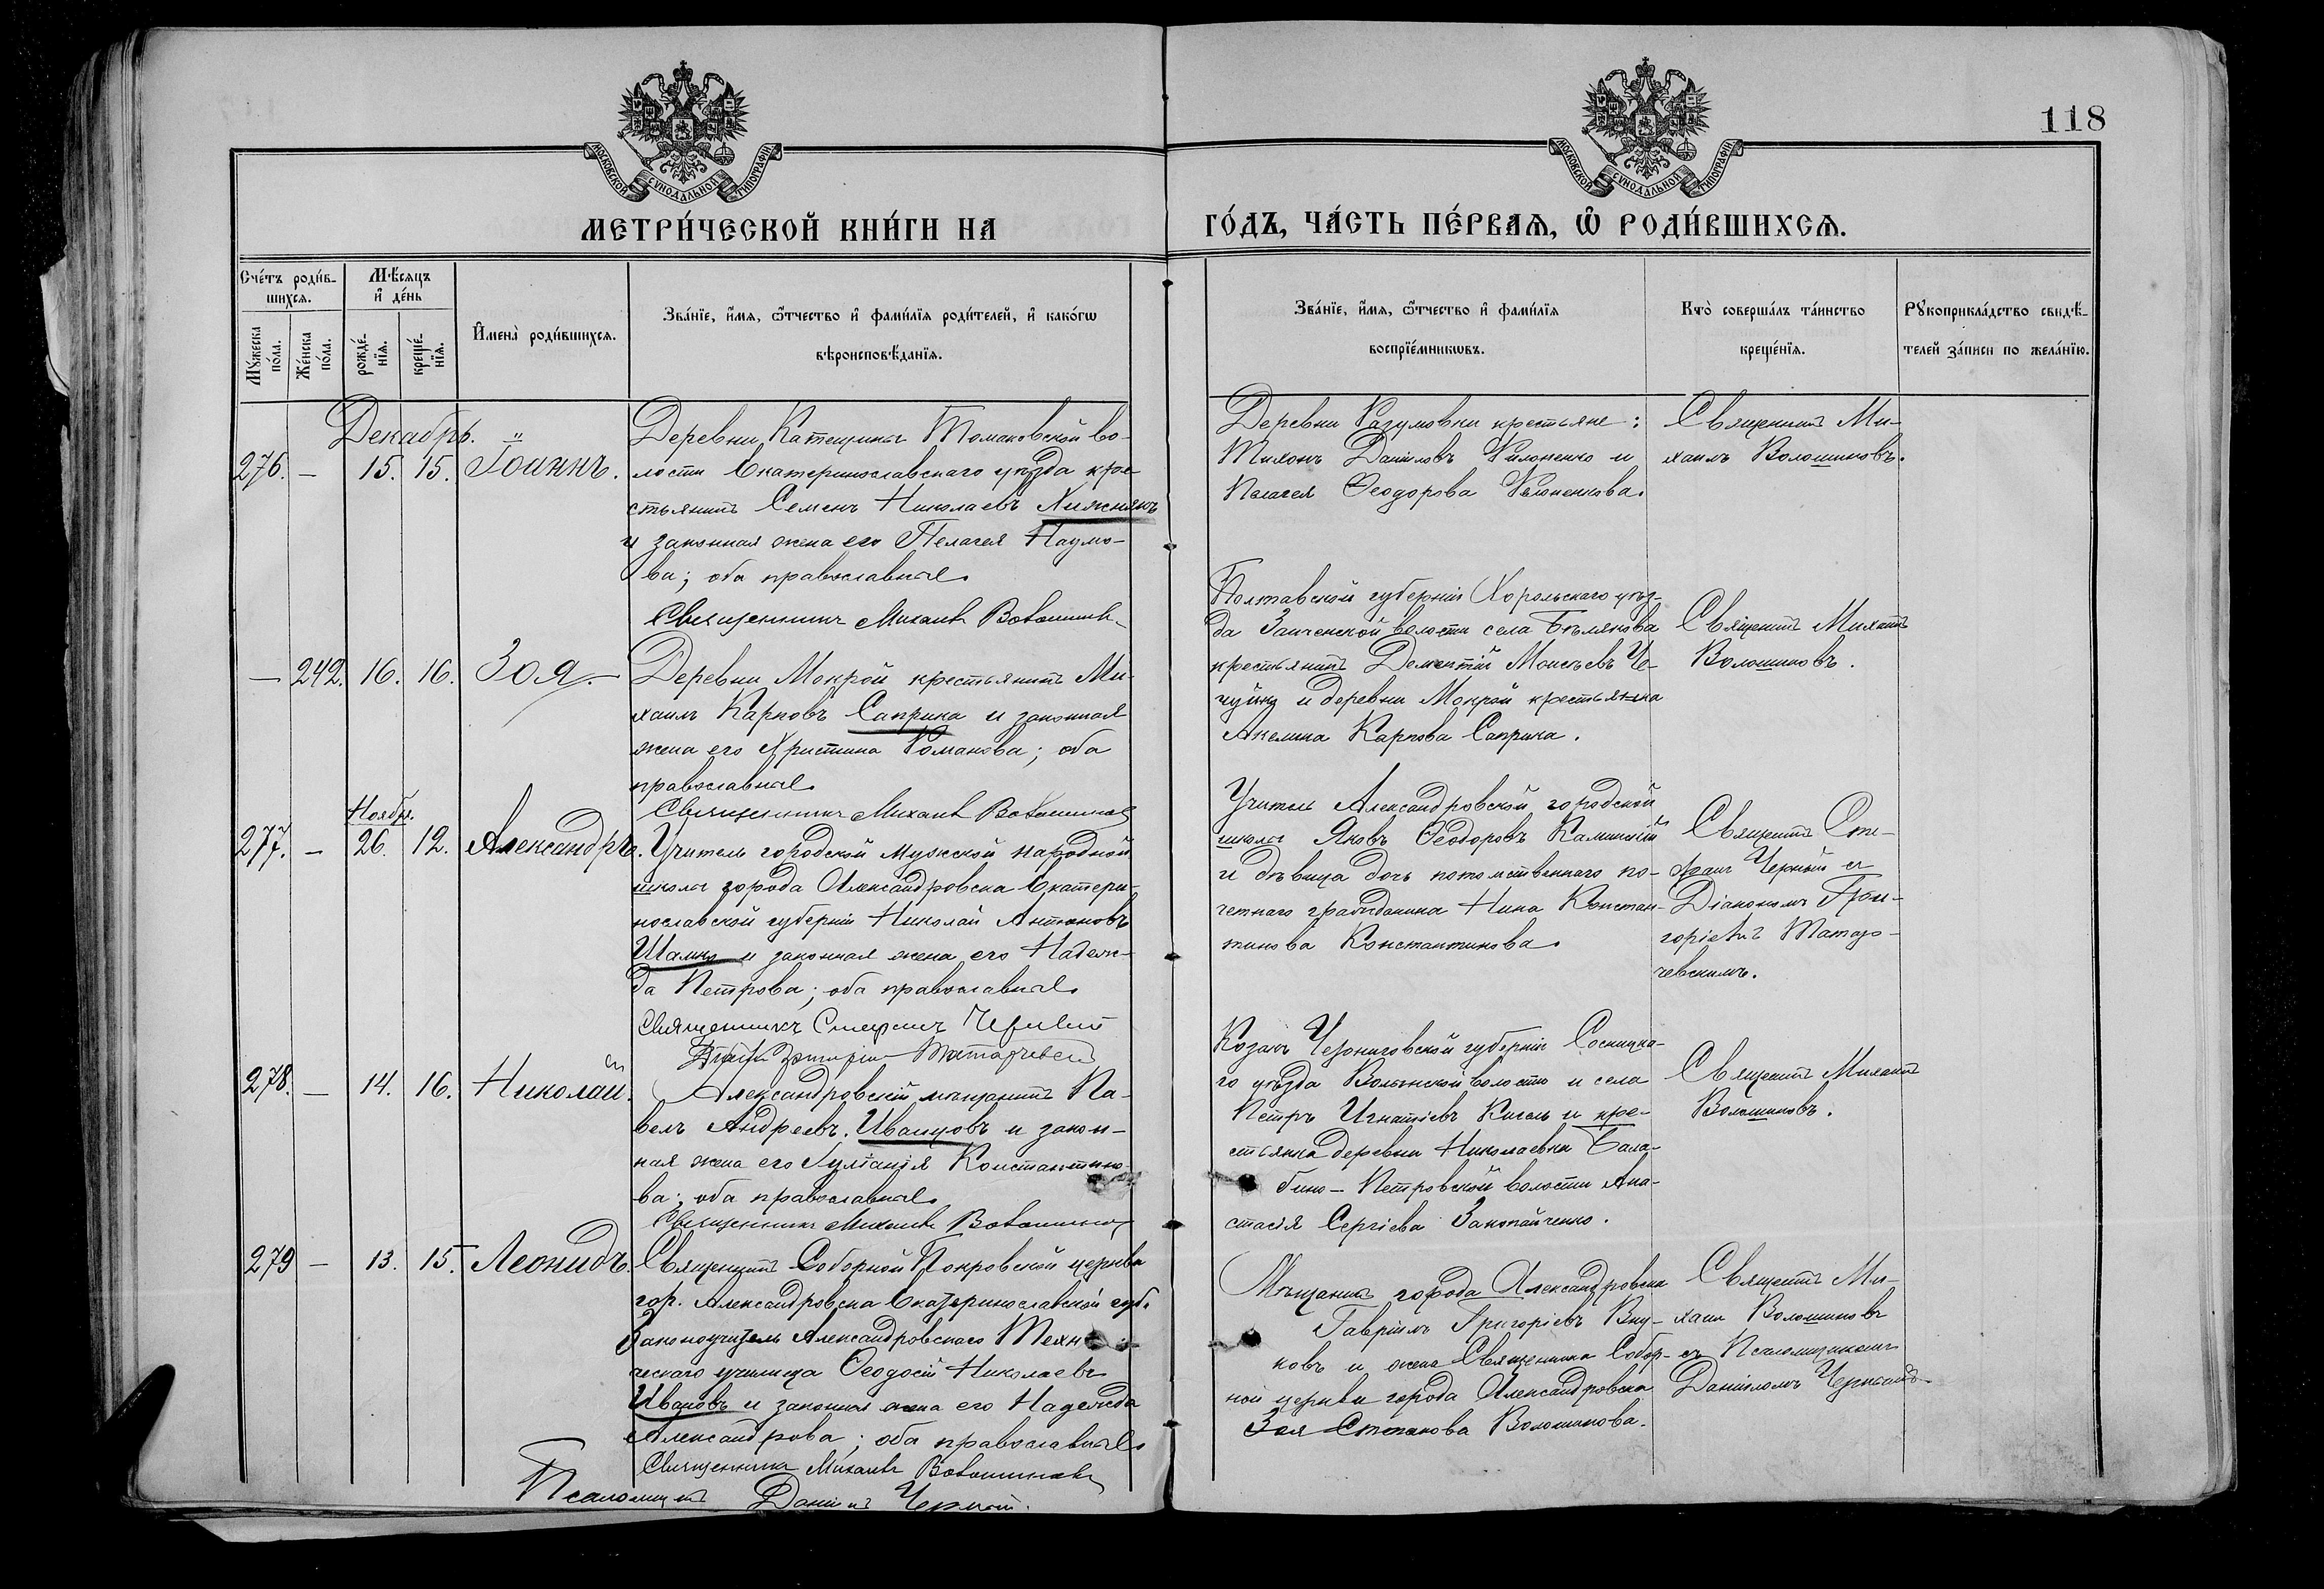 118
МОСКОВСКОЙ СѴНОДАЛЬНОЙ ТИПОГРАФІИ
МОСКОВСКОЙ СѴНОДАЛЬНОЙ ТИПОГРАФІИ
МЕТРИ́ЧЕСКОЙ КНИ́ГИ НА
ГО́ДЪ, ЧА́СТЬ ПЕ́РВАѦ, Ѽ РОДИ́ВШИХСѦ.
Сче́тъ роди́в-
шихсѧ.
Мꙋ́жеска
по́ла.
Же́нска
по́ла.
Мѣ́сѧцъ
и҆ де́нь
рожде́-
нїѧ.
креще́-
нїѧ.
И҆мена̀ роди́вшихсѧ.
Зва́нїе, и҆́мѧ, ѻ҆́тчество и҆ фами́лїѧ роди́телей, и҆ како́гѡ
вѣроисповѣ́данїѧ.
Зва́нїе, и҆́мѧ, ѻ҆́тчество и҆ фами́лїѧ
воспрїе́мникѡвъ.
Кто̀ соверша́лъ та́инство
креще́нїѧ.
Рꙋкоприкла́дство свидѣ́-
телей за́писи по жела́нїю.
Декабрь.
276. — 15. 15. Іоаннъ.
Деревни Катещины Томаковской во-
лости Екатеринославскаго уѣзда кре-
стьянинъ Семенъ Николаевъ Хижнякъ
и законная жена его Пелагея Наумо-
ва; оба православные.
Священникъ Михаилъ Волошиновъ
Деревни Разумовки крестьяне:
Тихонъ Даніиловъ Филоненко и
Пелагея Ѳеодорова
Священникъ Ми-
хаилъ Волошиновъ.
— 242. 16. 16. Зоя.
Деревни Мокрой крестьянинъ Ми-
хаилъ Карповъ Саприка и законная
жена его Христина Романова; оба
православные.
Священникъ Михаилъ Волошиновъ
Полтавской губерніи Хорольскаго уѣз-
да Заиченской волости села Бѣлякова
крестьянинъ Дементій Моисѣевъ Че-
и деревни Мокрой крестьянка
Акелина Карпова Саприка.
Священникъ Михаилъ
Волошиновъ.
Ноябрь.
277. — 26. 12. Александръ.
Учитель городской мужской народной
школы города Александровска Екатери-
нославской губерніи Николай Антоновъ
Шамко и законная жена его Надеж-
да Петрова; оба православные.
Священникъ Стефанъ Черный
Учитель Александровской городской
школы Яковъ Ѳеодоровъ Каминскій
и дѣвица дочь потомственнаго по-
четнаго гражданина Нина Констан-
тинова Константинова.
Священникъ Сте-
фанъ Черный съ
Діакономъ Гри-
горіемъ
278. — 14. 16. Николай.
Александровскій мѣщанинъ Па-
велъ Андреевъ Иванцовъ и закон-
ная жена его Іуліанія Константино-
ва; оба православные.
Священникъ Михаилъ Волошиновъ
Козакъ Черниговской губерніи Сосницка-
го уѣзда Волынской волости и села
Петръ Игнатіевъ Кисель и кре-
стьянка деревни Николаевки Бала-
бино-Петровской волости Ана-
стасія Сергіева Закопайченко.
Священникъ Михаилъ
Волошиновъ.
279 — 13. 15. Леонидъ.
Священникъ Соборной Покровской церкви
гор. Александровска Екатеринославской губ.
Законоучитель Александровскаго Техни-
ческаго училища Ѳеодосій Николаевъ
Ивановъ и законная жена его Надежда
Александрова; оба православные.
Священникъ Михаилъ Волошиновъ
Псаломщикъ Даніилъ Черный.
Мѣщанинъ города Александровска
Гавріилъ Григоріевъ Вну-
ковъ и жена Священника Собор-
ной церкви города Александровска
Зоя Степанова Волошинова.
Священникъ Ми-
хаилъ Волошиновъ
съ Псаломщикомъ
Даніиломъ Чернымъ